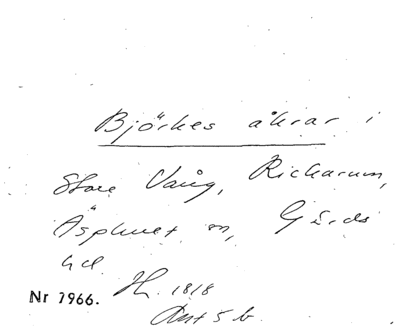 Björkes åkrar i
Store Vång, Rickarum,
Äsphult sn, Gärds
hd.
Nr 7966. Hl. 1818
Akt 5 b.